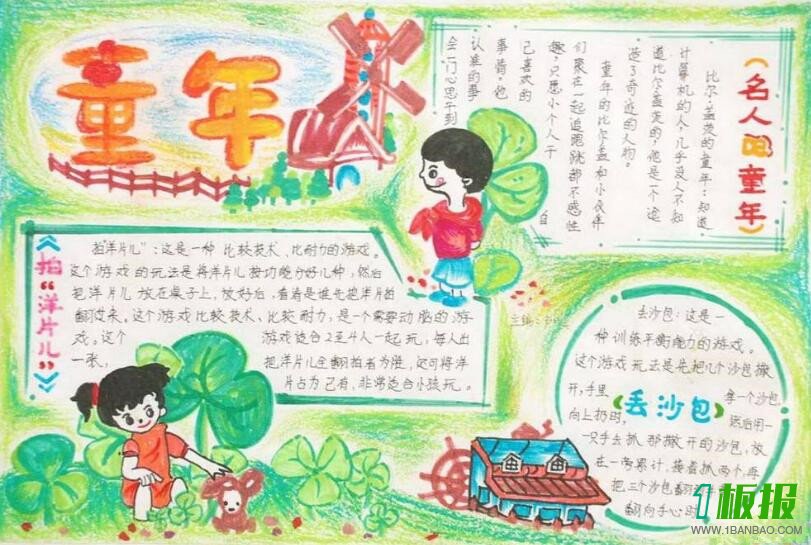 童年
《名人的童年》
比尔·盖茨的童年：知道
计算机的人，几乎没人不知
道比尔·盖茨的，他是一个追
造了奇迹的人物。
童年的比尔·盖和小伙伴
们聚在一起追跑跳都不感性
趣，只愿小个人干自
己喜欢的
事情。他
认准的事
会一门心思干到
《拍“洋片儿”》
拍“洋片儿”：这是一种比较技术、比耐力的游戏。
这个游戏的玩法是将洋片儿按功能分好几种，然后
把洋片儿放在桌子上，放好后，看着是谁先把洋片拍
翻过来。这个游戏比较技术、比较耐力，是一个需要动脑的游
戏。这个游戏适合2至4人一起玩，每人出
一张，把洋片儿全翻拍者为胜，还可将洋
片占为己有，非常适合小孩玩。
主编：
《丢沙包》
丢沙包：这是一
种训练平衡能力的游戏。
这个游戏玩法是先把几个沙包撒
开，手里拿一个沙包，
向上扔时，然后用一
只手去抓那撒开的沙包，放
在一旁累计，接着抓两个，再
把三个沙包翻
翻向手心时
板报
WWW.1BANBAO.COM